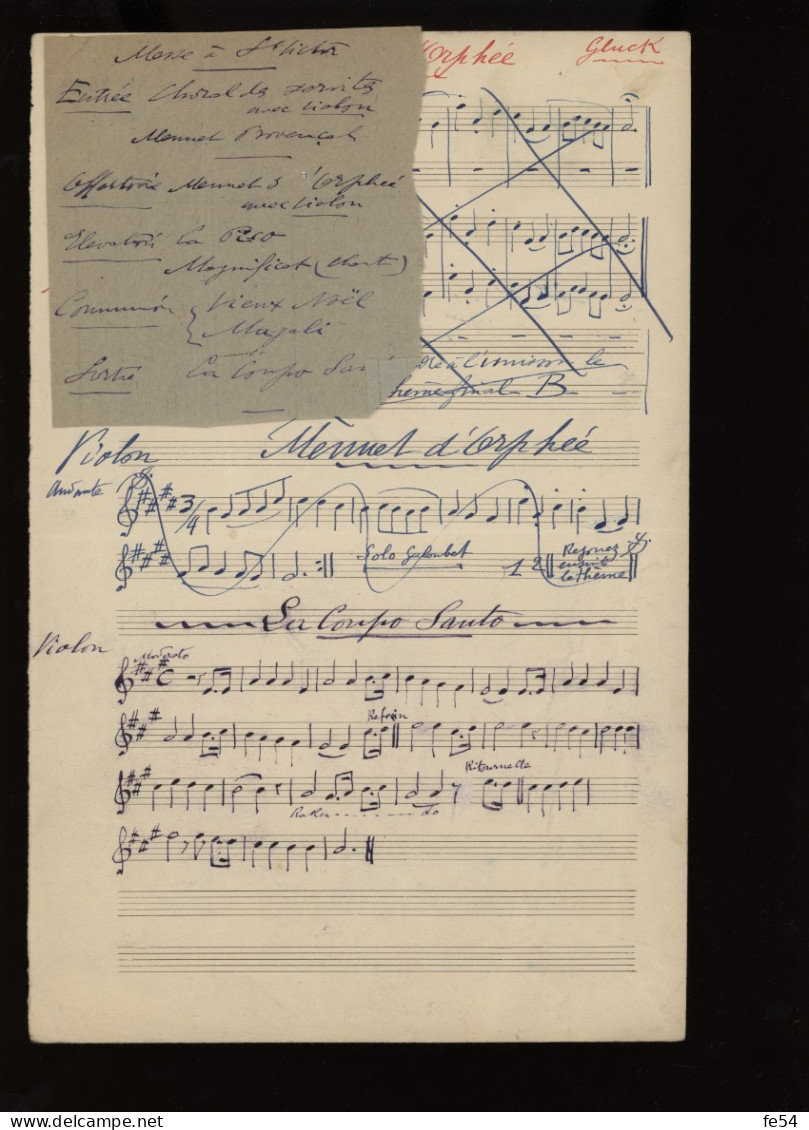 Messe à St Victor
Entrée Choral des
avec violon
Menuet Provençal
Offertoire Menuet d'Orphée
avec violon
Elevation La
Magnificat (chant)
Communion { Vieux Noël
Magali
Sortie La Coupo San
d'Orphée Gluck
à l'unisson le
theme final B
Violon Menuet d'Orphée
Andante
3/4
Solo Galoubet 1 2 Rejouez
ensuite
le theme
La Coupo Santo
Violon
Moderato
C
Refrain
Ritournelle
Rallen do
fe54